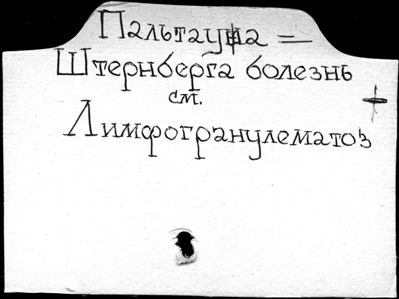 Пальтауфа =
Штернберга болезнь
см.
Лимфогранулематоз